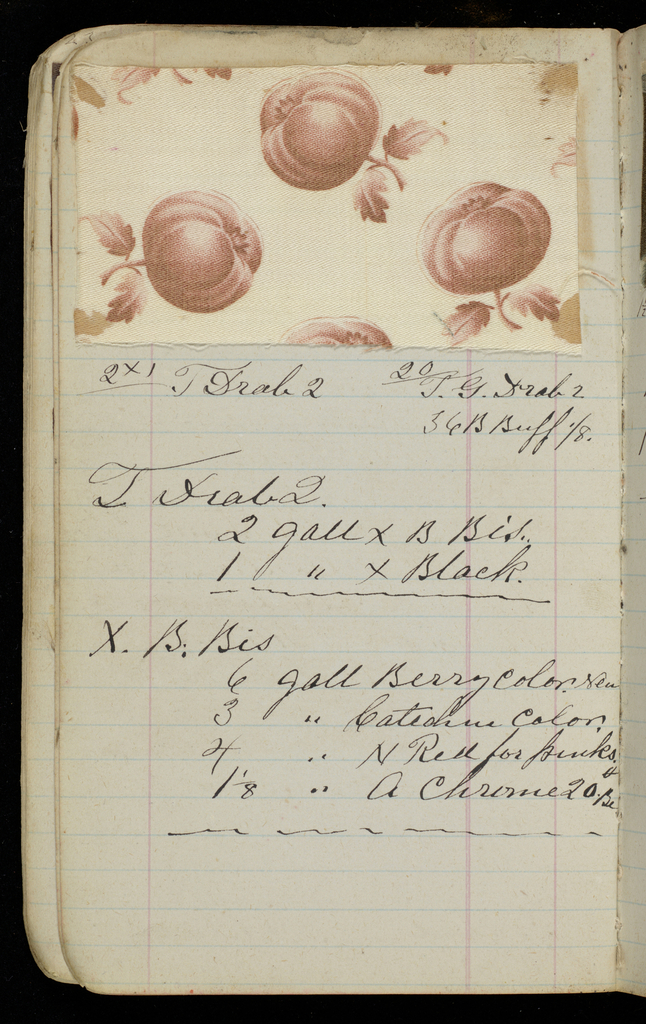 2x1 T Drab 2 20 T. G. Drab 2
36 B Buff 1/8.
T Drab 2.
2 gall x B Bis.
1 " x Black.
X. B. Bis
6 gall Berry color. New
3 " Catechu color.
4 " N Red for pinks.
1 1/8 " A Chrome 20. Be